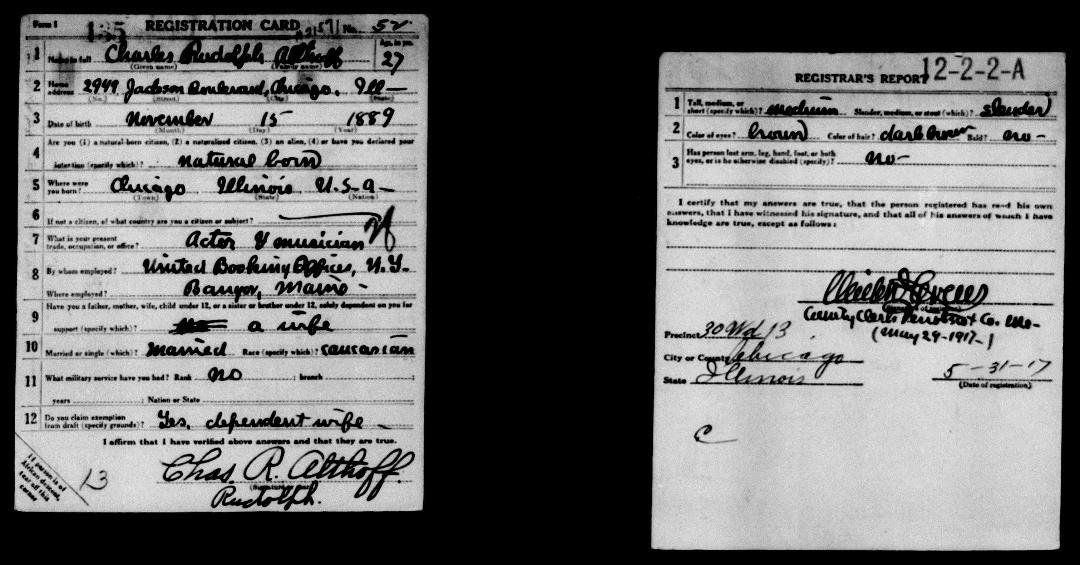 Form 1 135 REGISTRATION CARD No. 52
1 Name in full Charles Rudolph Althoff Age, in yrs. 27
(Given name) (Family name)
2 Home address 2949 Jackson Boulevard, Chicago, Ill—
(No.) (Street) (City) (State)
3 Date of birth November 15 1889
(Month) (Day) (Year)
4 Are you (1) a natural-born citizen, (2) a naturalized citizen, (3) an alien, (4) or have you declared your
intention (specify which)? natural born
5 Where were you born? Chicago Illinois U.S.A—
(Town) (State) (Nation)
6 If not a citizen, of what country are you a citizen or subject?
7 What is your present trade, occupation, or office? Actor & musician
8 By whom employed? United Booking Offices, N.Y.
Where employed? Bangor, Maine -
9 Have you a father, mother, wife, child under 12, or a sister or brother under 12, solely dependent on you for
support (specify which)? a wife
10 Married or single (which)? Married Race (specify which)? Caucasian
11 What military service have you had? Rank no ; branch ;
years ; Nation or State
12 Do you claim exemption from draft (specify grounds)? Yes, dependent wife -
I affirm that I have verified above answers and that they are true.
Chas. R. Althoff.
Rudolph.
If person is of African descent, tear off this corner
13
REGISTRAR'S REPORT 12-2-2-A
1 Tall, medium, or short (specify which)? medium Slender, medium, or stout (which)? slender
2 Color of eyes? brown Color of hair? dark brown Bald? no-
3 Has person lost arm, leg, hand, foot, or both eyes, or is he otherwise disabled (specify)? no-
I certify that my answers are true, that the person registered has read his own
answers, that I have witnessed his signature, and that all of his answers of which I have
knowledge are true, except as follows:
County Clerk Penobscot Co. Me-
(May 29-1917-)
Precinct 30 Wd 13
City or County Chicago
State Illinois 5-31-17
(Date of registration)
C